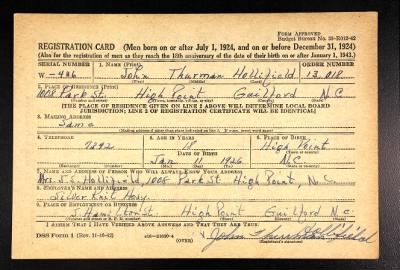 FORM APPROVED
Budget Bureau No. 33-R012-42
REGISTRATION CARD (Men born on or after July 1, 1924, and on or before December 31, 1924)
(Also for the registration of men as they reach the 18th anniversary of the date of their birth on or after January 1, 1943.)
SERIAL NUMBER 1. NAME (Print) ORDER NUMBER
W-436 John Thurman Hollifield 13,018
(First) (Middle) (Last)
2. PLACE OF RESIDENCE (Print)
1008 Park St. High Point Guilford N.C.
[THE PLACE OF RESIDENCE GIVEN ON LINE 2 ABOVE WILL DETERMINE LOCAL BOARD
JURISDICTION; LINE 2 OF REGISTRATION CERTIFICATE WILL BE IDENTICAL]
3. MAILING ADDRESS
Same
4. TELEPHONE 5. AGE IN YEARS 6. PLACE OF BIRTH
7292 18 High Point
DATE OF BIRTH
Jan 11 1926 N.C.
7. NAME AND ADDRESS OF PERSON WHO WILL ALWAYS KNOW YOUR ADDRESS
Hollifield, 1008 Park St. High Point, N.C.
8. EMPLOYER'S NAME AND ADDRESS
Silver Knit Hosy.
9. PLACE OF EMPLOYMENT OR BUSINESS
S. Hamilton St. High Point Guilford N.C.
I AFFIRM THAT I HAVE VERIFIED ABOVE ANSWERS AND THAT THEY ARE TRUE.
DSS Form 1 (Rev. 11-16-42) (OVER) John Thurman Hollifield
(Registrant's signature)